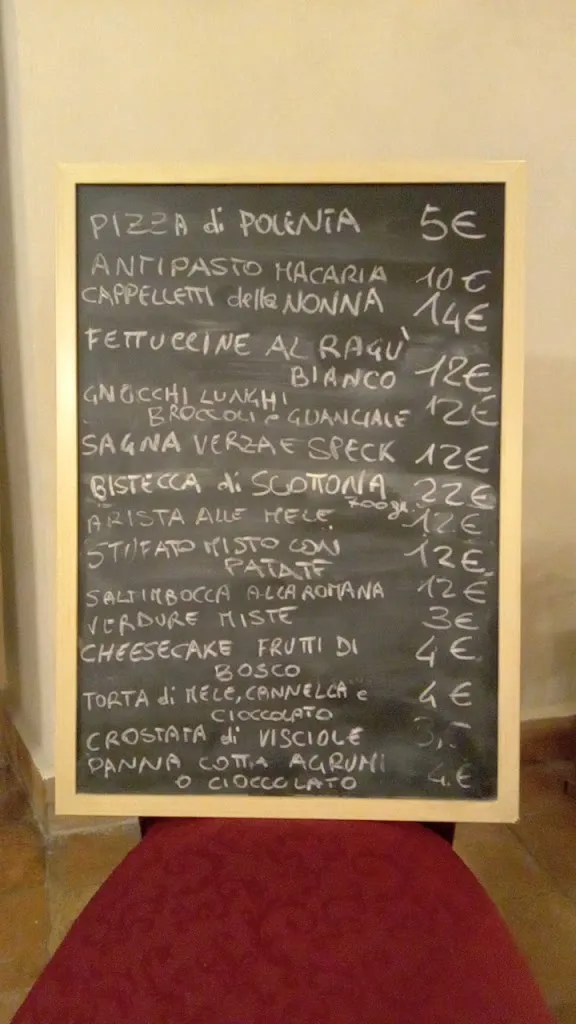 PIZZA di POLENTA 5€
ANTIPASTO MACARIA 10€
CAPPELLETTI della NONNA 14€
FETTUCCINE AL RAGU'
BIANCO 12€
GNOCCHI LUNGHI
BROCCOLI e GUANCIALE 12€
SAGNA VERZA E SPECK 12€
BISTECCA di SCOTTONA 22€
700gr.
ARISTA ALLE MELE 12€
STUFATO MISTO CON
PATATE 12€
SALTIMBOCCA ALLA ROMANA 12€
VERDURE MISTE 3€
CHEESECAKE FRUTTI DI
BOSCO 4€
TORTA di MELE, CANNELLA e
CIOCCOLATO 4€
CROSTATA di VISCIOLE
PANNA COTTA AGRUMI
O CIOCCOLATO 4€